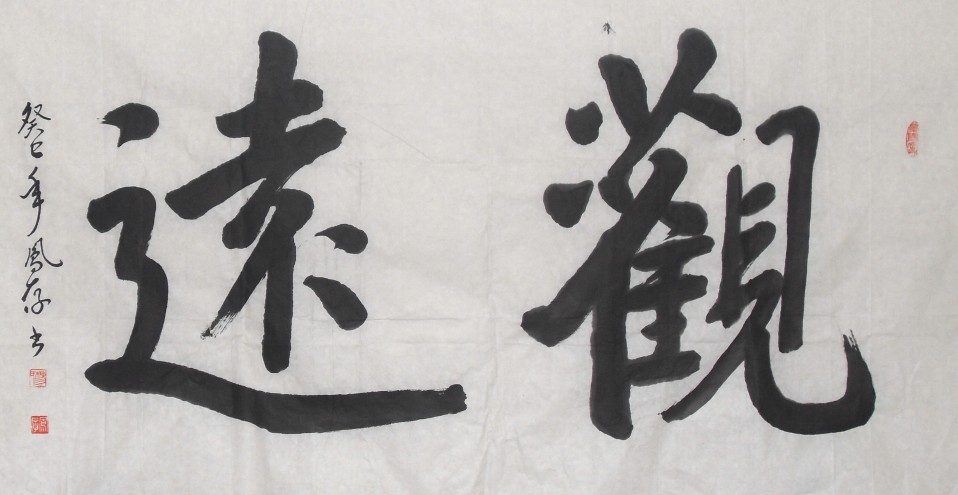 觀遠
癸巳年鳳存书